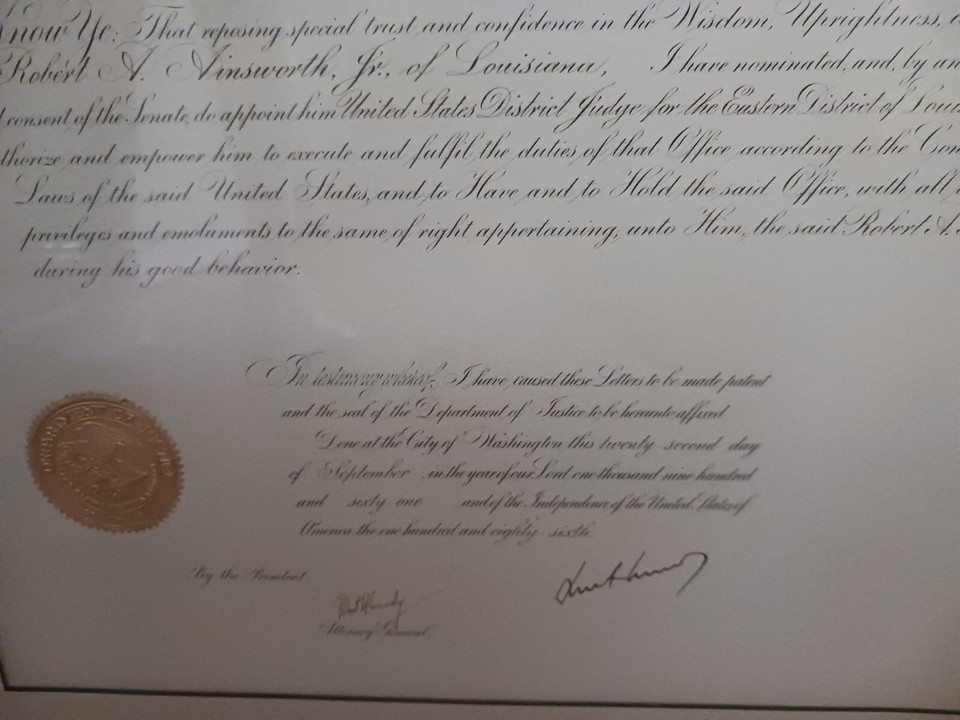 Know Ye; That reposing special trust and confidence in the Wisdom, Uprightness,
Robert A. Ainsworth, Jr., of Louisiana, I have nominated, and, by an
consent of the Senate, do appoint him United States District Judge for the Eastern District of Loui
thorize and empower him to execute and fulfil the duties of that Office according to the Con
Laws of the said United States, and to Have and to Hold the said Office, with all
privileges and emoluments to the same of right appertaining, unto Him, the said Robert A.
during his good behavior.
In testimony whereof, I have caused these Letters to be made patent
and the seal of the Department of Justice to be hereunto affixed
Done at the City of Washington this twenty second day
of September in the year of our Lord one thousand nine hundred
and sixty one and of the Independence of the United States of
America the one hundred and eighty sixth.
By the President
Attorney General